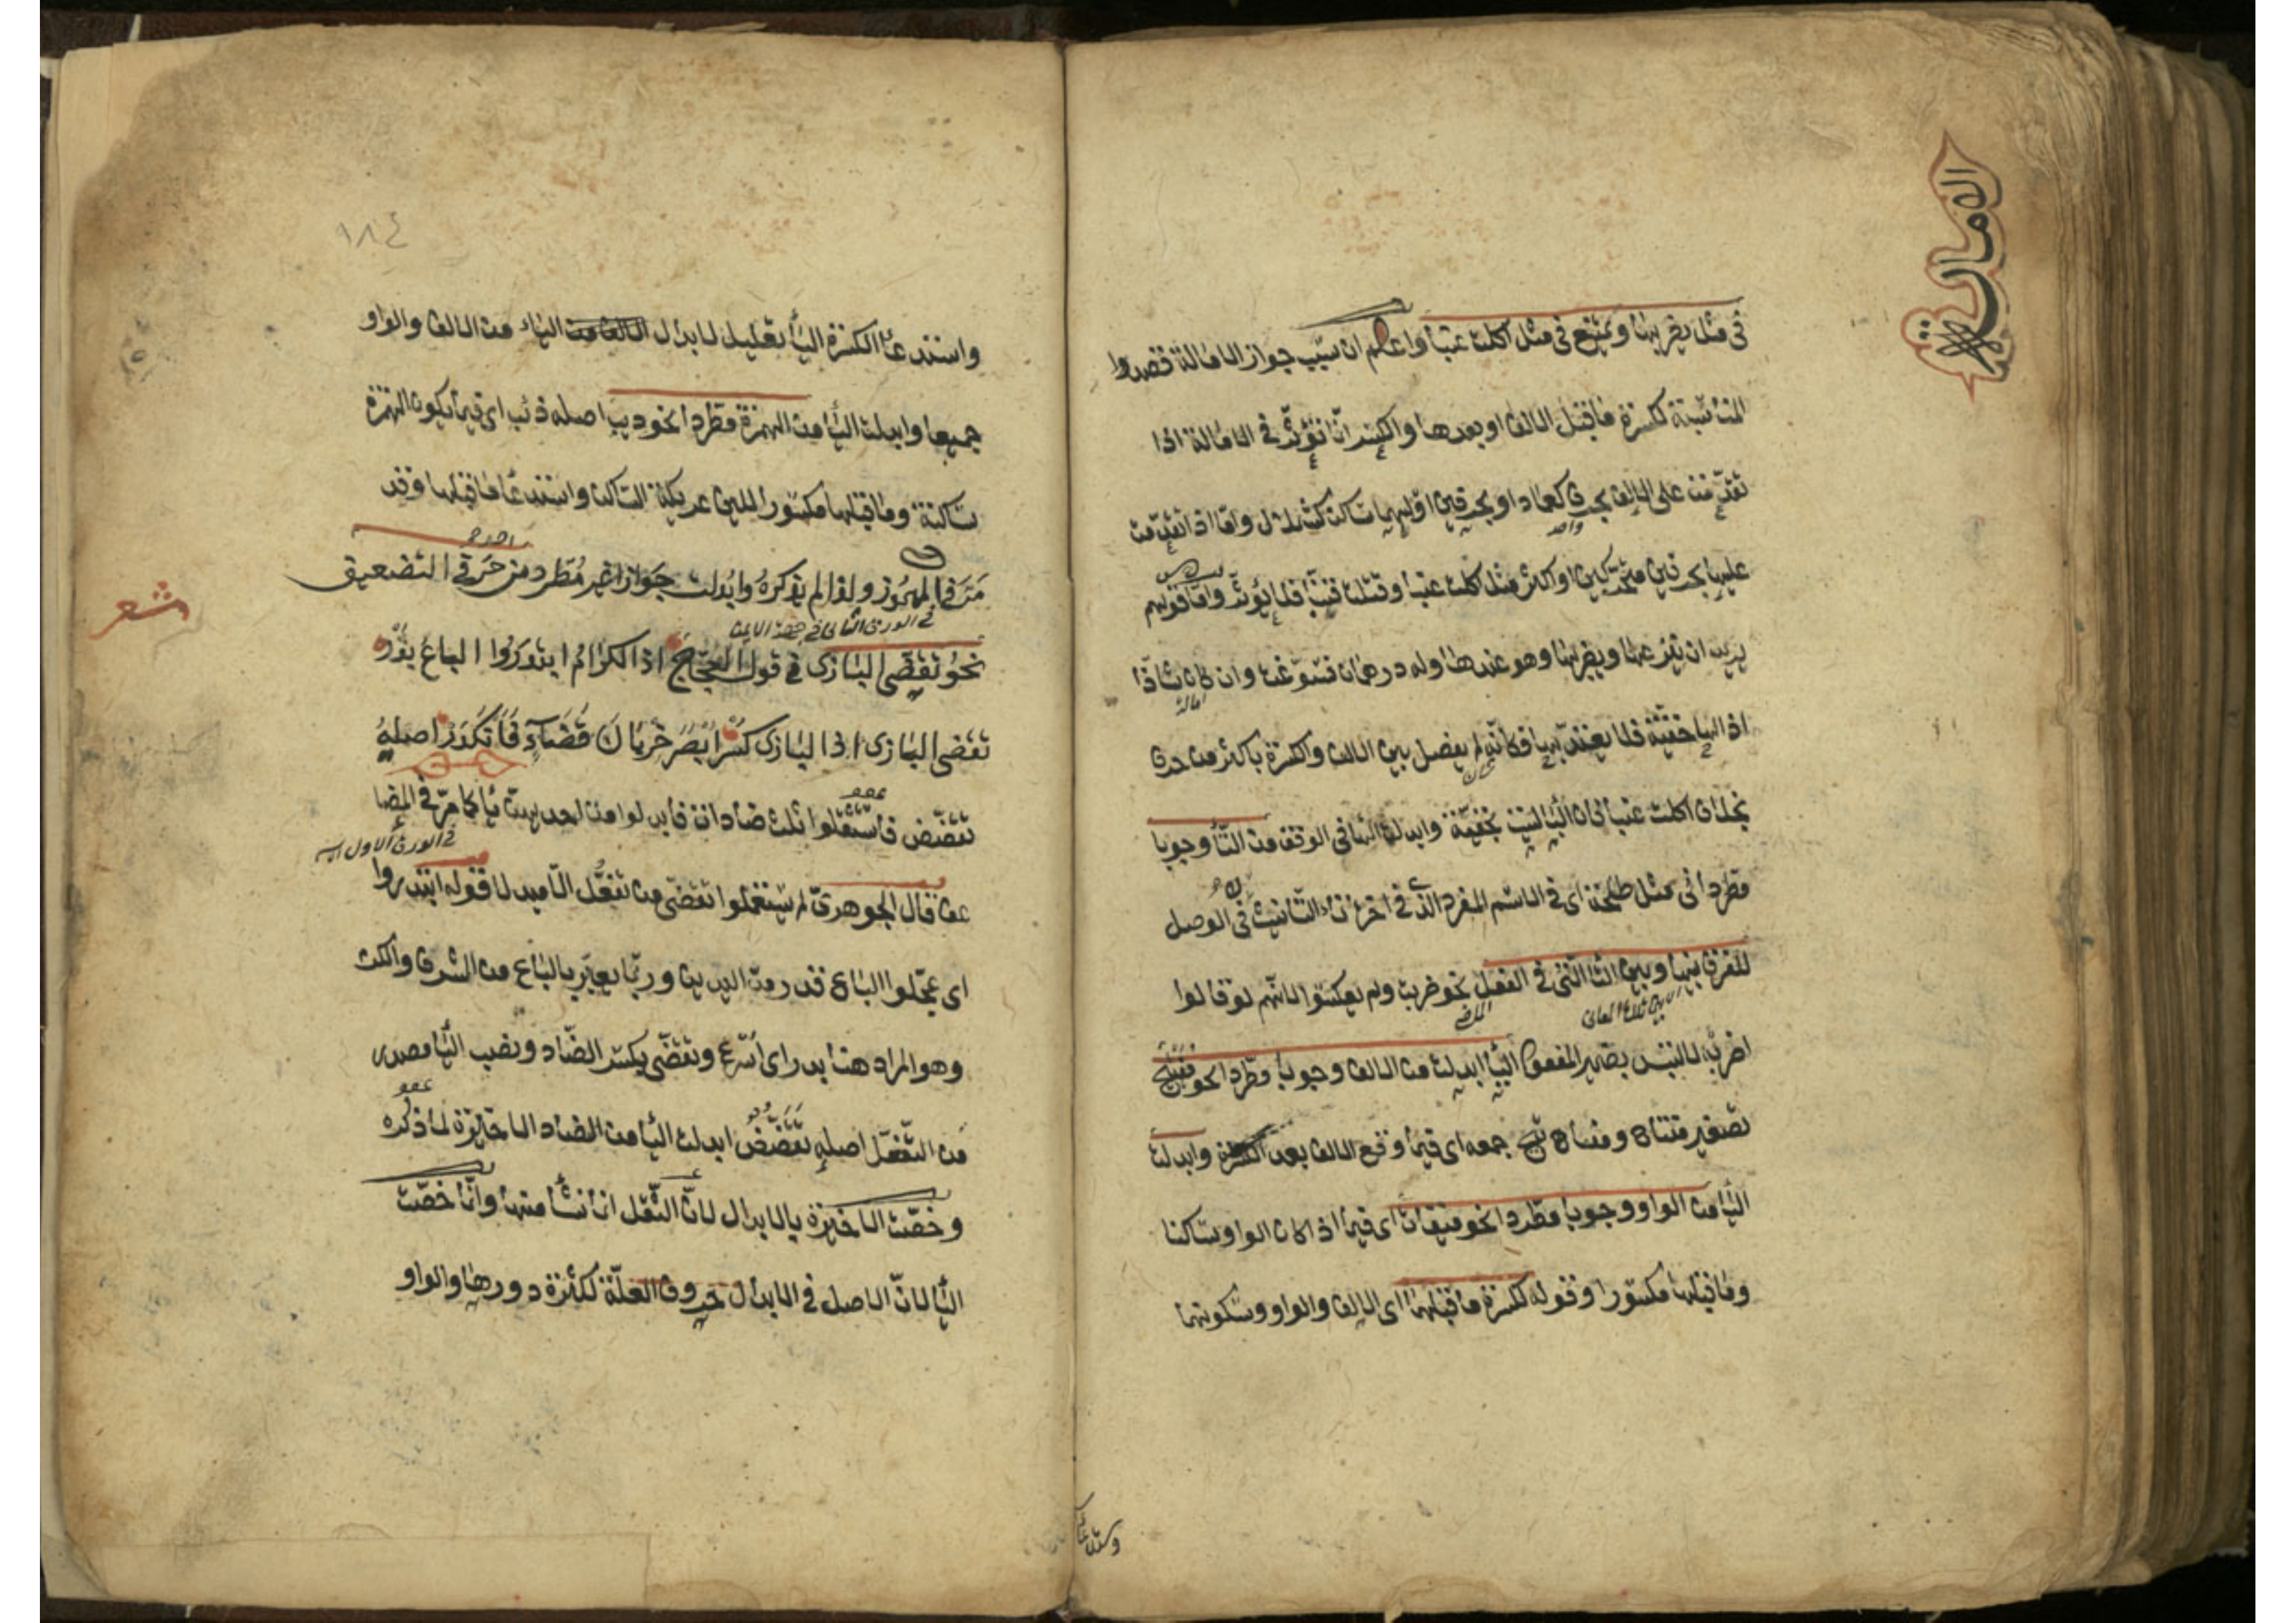 الامالة
فى مثل يضربها ويمتنع فى مثل اكلت عنبا واعلم ان سبب جواز الامالة قصدوا
المناسبة لكسرة ما قبل الالف او بعدها والكسر انما تؤثر فى الامالة اذا
تقدمت على الالف بحرف كعماد او بحرفين اوليهما ساكن كشملال واما اذا تقدمت
واحد
عليها بحرفين متحركين او اكثر مثل اكلت عنبا وقتلت قنبا فلا يؤثر واما قولهم
يريد ان ينزعها ويضربها وهو عندها وله درهمان فسوغت وان كان شاذا
امالة
اذ الهاء خفية فلا يعتد بها فكانه لم يفصل بين الالف والكسرة باكثر من حرف
بخلاف اكلت عنبا فان الباء ليست بخفية وابدلت الهاء فى الوقف من التاء وجوبا
مطردا فى مثل طلحة اى فى الاسم المفرد الذى فى اخره تاء التانيث فى الوصل
للفرق بينها وبين التاء التى فى الفعل نحو ضربت ولم يعكسوا لانهم لو قالوا
اضربه لالتبس بضمير المفعول الياء ابدلت من الالف وجوبا مطردا نحو مفيتيح
تصغير مفتاح ومفاتيح جمعه اى فيما وقع الالف بعد الكسرة وابدلت
الياء من الواو وجوبا مطردا نحو ميقات اى فيما اذا كان الواو ساكنا
وما قبلها مكسورا وقوله لكسرة ما قبلهما اى الالف والواو وسكونهما
واستدعاء
١٨٤
واستدعاء الكسرة الياء تعليل لابدال الياء من الالف والواو
جميعا وابدلت الياء من الهمزة مطردا نحو ذيب اصله ذئب اى فيما يكون الهمزة
ساكنة وما قبلها مكسورا للين عريكة الساكن واستدعاء ما قبلها وقد
مر فى المهموز ولذا لم يذكره وابدلت جوازا غير مطرد من حرفى التضعيف
شعر
نحو تقضى البازى فى قول العجاج اذا الكرام ابتدروا الباع بدر
تقضى البازى اذا البازى كسر ابصر خربان فضاء فانكدر اصله
تقضض فاستثقلوا ثلث ضادات فابدلوا من احديهن ياء كما مر فى المضا
عف قال الجوهرى لم يستعملوا تقضى من تفعل الا مبدلا قوله ابتدروا
اى عجلوا الباع قدر مد اليدين وربما يعبر بالباع عن الشرف والكرم
وهو المراد هنا بدر اى اسرع وتقضى بكسر الضاد ونصب الياء مصدر
من التفعل اصله تقضض ابدلت الياء من الضاد الاخيرة لما ذكره
وخصت الاخيرة بالابدال لان الثقل انما نشأ منها وانما خصت
الياء لان الاصل فى الابدال حروف العلة لكثرة دورها والواو